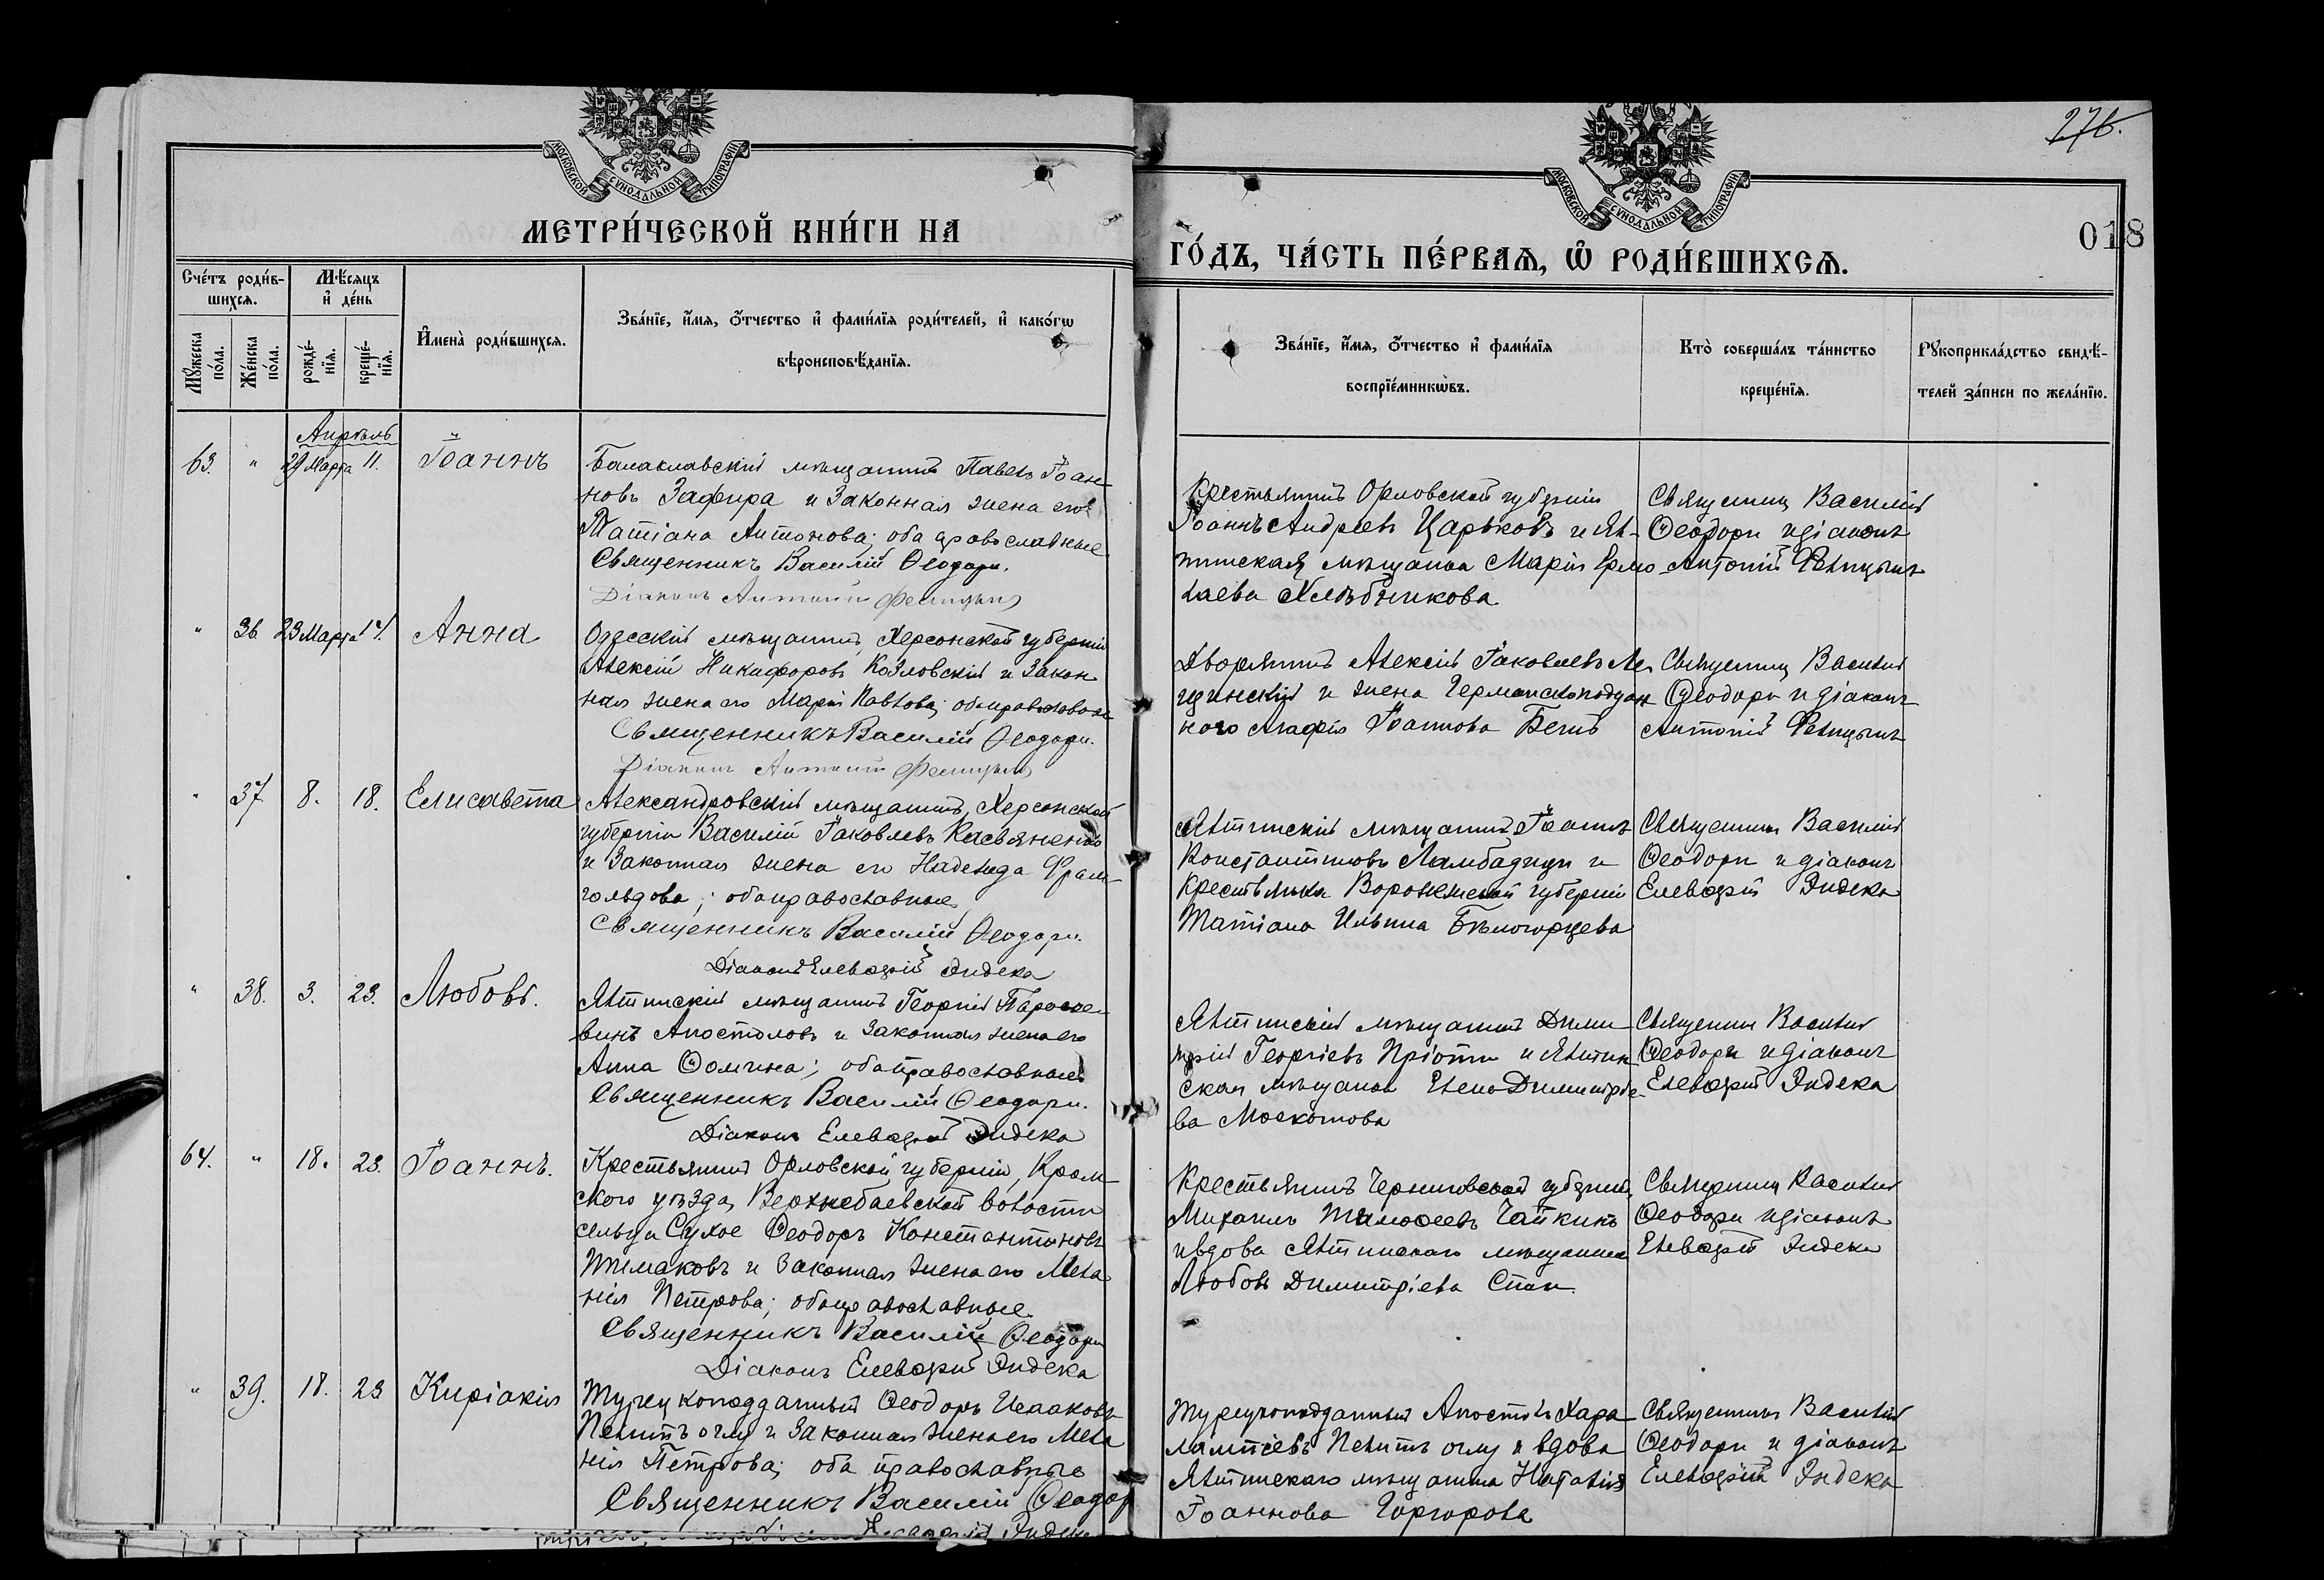 276.
018
МОСКОВСКОЙ СѴНОДАЛЬНОЙ ТИПОГРАФІИ
МЕТРИ́ЧЕСКОЙ КНИ́ГИ НА
МОСКОВСКОЙ СѴНОДАЛЬНОЙ ТИПОГРАФІИ
ГО́ДЪ, ЧА́СТЬ ПЕ́РВАѦ, Ѡ РОДИ́ВШИХСѦ.
Сче́тъ роди́в-
шихсѧ.
Мѣ́сѧцъ
и҆ де́нь
Мꙋ́жеска
по́ла.
Же́нска
по́ла.
рожде́-
нїѧ.
креще́-
нїѧ.
И҆мена̀ роди́вшихсѧ.
Зва́нїе, и҆́мѧ, ѻ҆́тчество и҆ фами́лїѧ роди́телей, и҆ како́гѡ
вѣроисповѣ́данїѧ.
Зва́нїе, и҆́мѧ, ѻ҆́тчество и҆ фами́лїѧ
воспрїе́мникѡвъ.
Кто̀ соверша́лъ та́инство
креще́нїѧ.
Рꙋкоприкла́дство свидѣ́-
телей за́писи по жела́нїю.
Апрѣль
63. " 29 Марта 11. Іоаннъ
Балаклавскій мѣщанинъ Павелъ Іоан-
новъ Зафира и законная жена его
Татіана Антонова; оба православные
Священникъ Василій Ѳеодори.
Діаконъ Антоній Феницынъ
Крестьянинъ Орловской губерніи
Іоаннъ Андреевъ Царьковъ и Ял-
тинская мѣщанка Марія Ермо-
лаева Хлѣбникова
Священникъ Василій
Ѳеодори и діаконъ
Антоній Феницынъ
" 36 23 Марта 14. Анна
Одесскій мѣщанинъ, Херсонской губерніи
Алексій Никифоровъ Козловскій и закон-
ная жена его Марія Павлова; оба православные
Священникъ Василій Ѳеодори.
Діаконъ Антоній Феницынъ
Дворянинъ Алексій Іаковлевъ
и жена Германскоподдан-
ного Агафія Іоаннова
Священникъ Василій
Ѳеодори и діаконъ
Антоній Феницынъ
" 37 8. 18. Елисавета
Александровскій мѣщанинъ, Херсонской
губерніи Василій Іаковлевъ Касьяненко
и законная жена его Надежда
; оба православные
Священникъ Василій Ѳеодори.
Діаконъ Елевѳерій Эндека
Ялтинскій мѣщанинъ Іоаннъ
Константиновъ Ламбадзиди и
крестьянка Воронежской губерніи
Татіана Ильина Бѣлогорцева
Священникъ Василій
Ѳеодори и діаконъ
Елевѳерій Эндека
" 38. 3. 23. Любовь.
Ялтинскій мѣщанинъ Георгій Параске-
винъ Апостоловъ и законная жена его
Анна Ѳомина; оба православные
Священникъ Василій Ѳеодори.
Діаконъ Елевѳерій Эндека
Ялтинскій мѣщанинъ Дими-
трій Георгіевъ и Ялтин-
ская мѣщанка Елена Димитріе-
ва Москотова
Священникъ Василій
Ѳеодори и діаконъ
Елевѳерій Эндека
64. " 18. 23. Іоаннъ.
Крестьянинъ Орловской губерніи, Кром-
ского уѣзда, волости
сельца Сухое Ѳеодоръ Константиновъ
и законная жена его Мела-
нія Петрова; оба православные.
Священникъ Василій Ѳеодори
Діаконъ Елевѳерій Эндека
Крестьянинъ Черниговской губерніи,
Михаилъ Тимоѳеевъ Чайкинъ
и вдова Ялтинскаго мѣщанина
Любовь Димитріева
Священникъ Василій
Ѳеодори и діаконъ
Елевѳерій Эндека
" 39. 18. 23 Киріакія
Турецкоподданный Ѳеодоръ Исааковъ
оглу и законная жена его Мела-
нія Петрова; оба православные
Священникъ Василій Ѳеодор
Эндека
Турецкоподданный Апостолъ Хара-
лампіевъ оглу и вдова
Ялтинскаго мѣщанина Наталія
Іоаннова Горгорова
Священникъ Василій
Ѳеодори и діаконъ
Елевѳерій Эндека